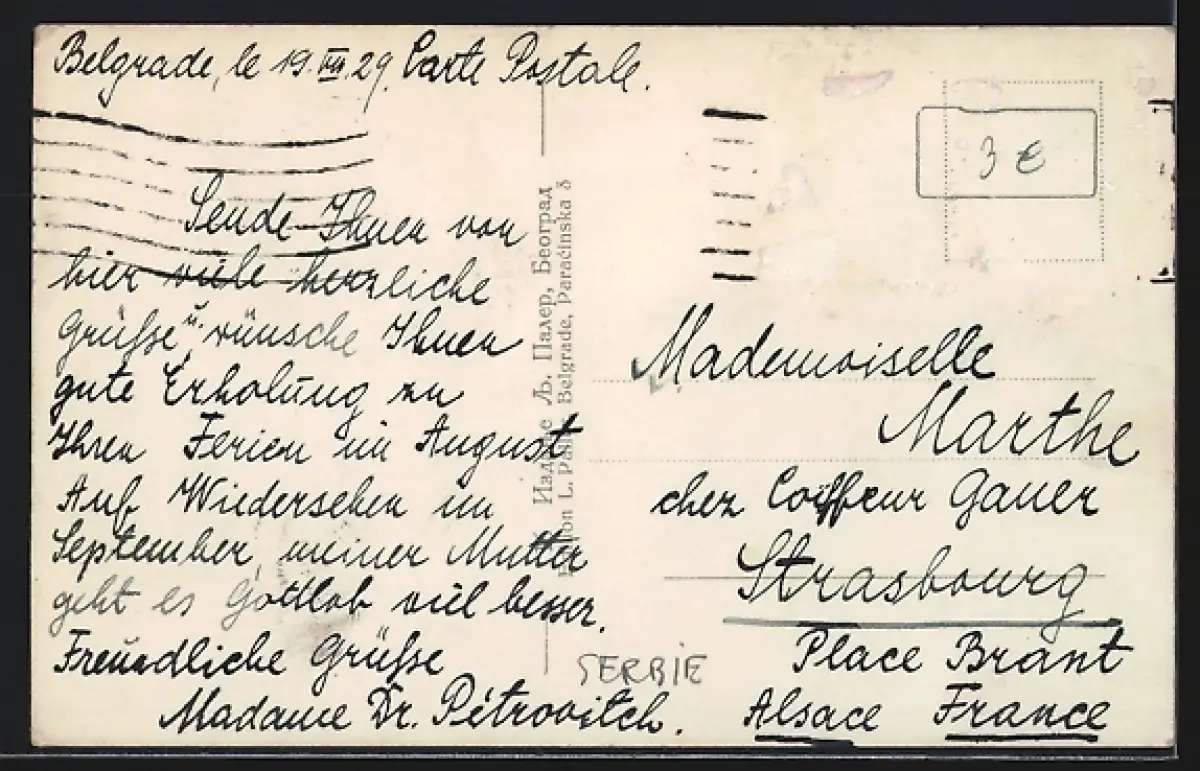 Belgrade, le 19.VII.29. Carte Postale.
3 €
Sende Ihnen von
hier viele herzliche
Grüße u. wünsche Ihnen
gute Erholung zu
Ihren Ferien im August
Auf Wiedersehen im
September, meiner Mutter
geht es Gottlob viel besser.
Freundliche Grüße
Madame Dr. Pétrovitch.
Љ. Палер, Београд
L. Belgrade, Paraćinska 3
SERBIE
Mademoiselle
Marthe
chez Coiffeur Gauer
Strasbourg
Place Brant
Alsace France